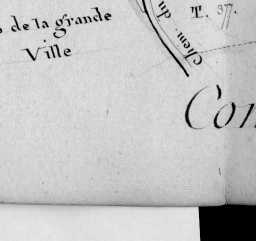 de la grande
Ville
Chem. du
T. 37.
Con